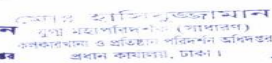 মোঃ হাসিবুজ্জামান
যুগ্ম মহাপরিদর্শক (সাধারণ)
কলকারখানা ও প্রতিষ্ঠান পরিদর্শন অধিদপ্তর
প্রধান কার্যালয়, ঢাকা।